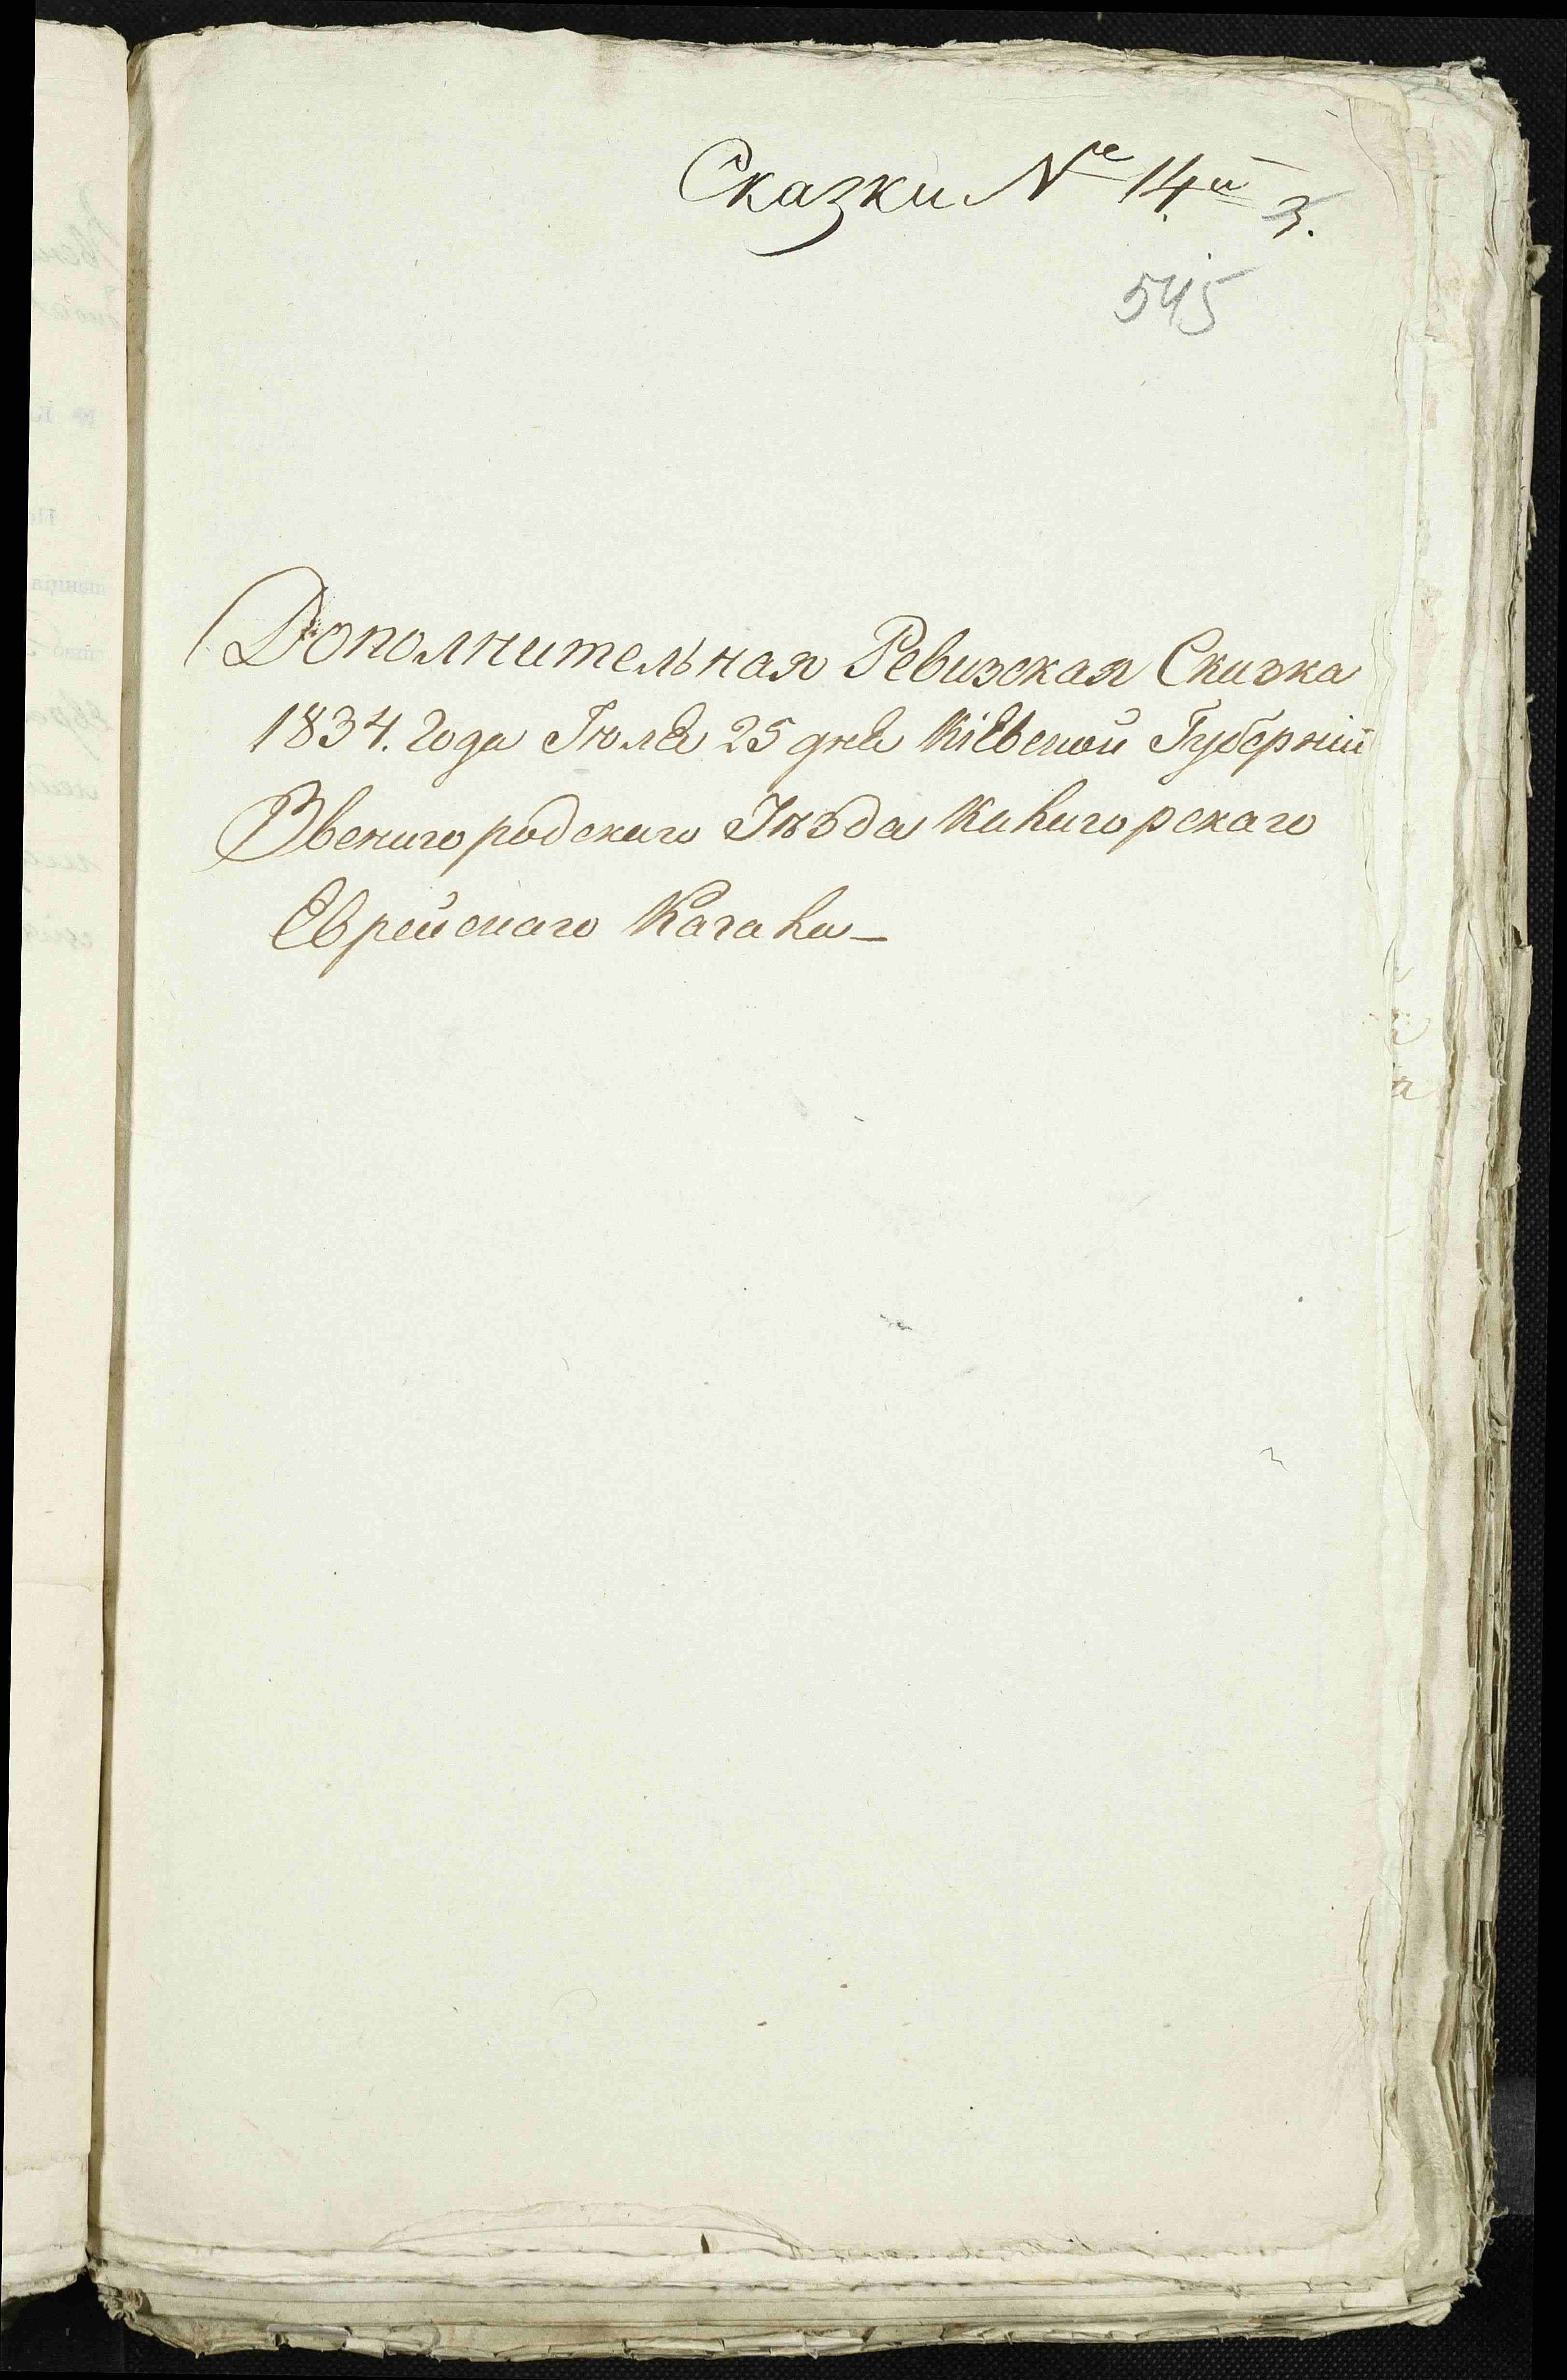 Сказки № 14й
3.
545
Дополнительная Ревизская Сказка
1834. года Іюля 25 дня Кіевской Губерніи
Звенигородскаго Уѣзда Кинигорскаго
Еврейскаго Кагала